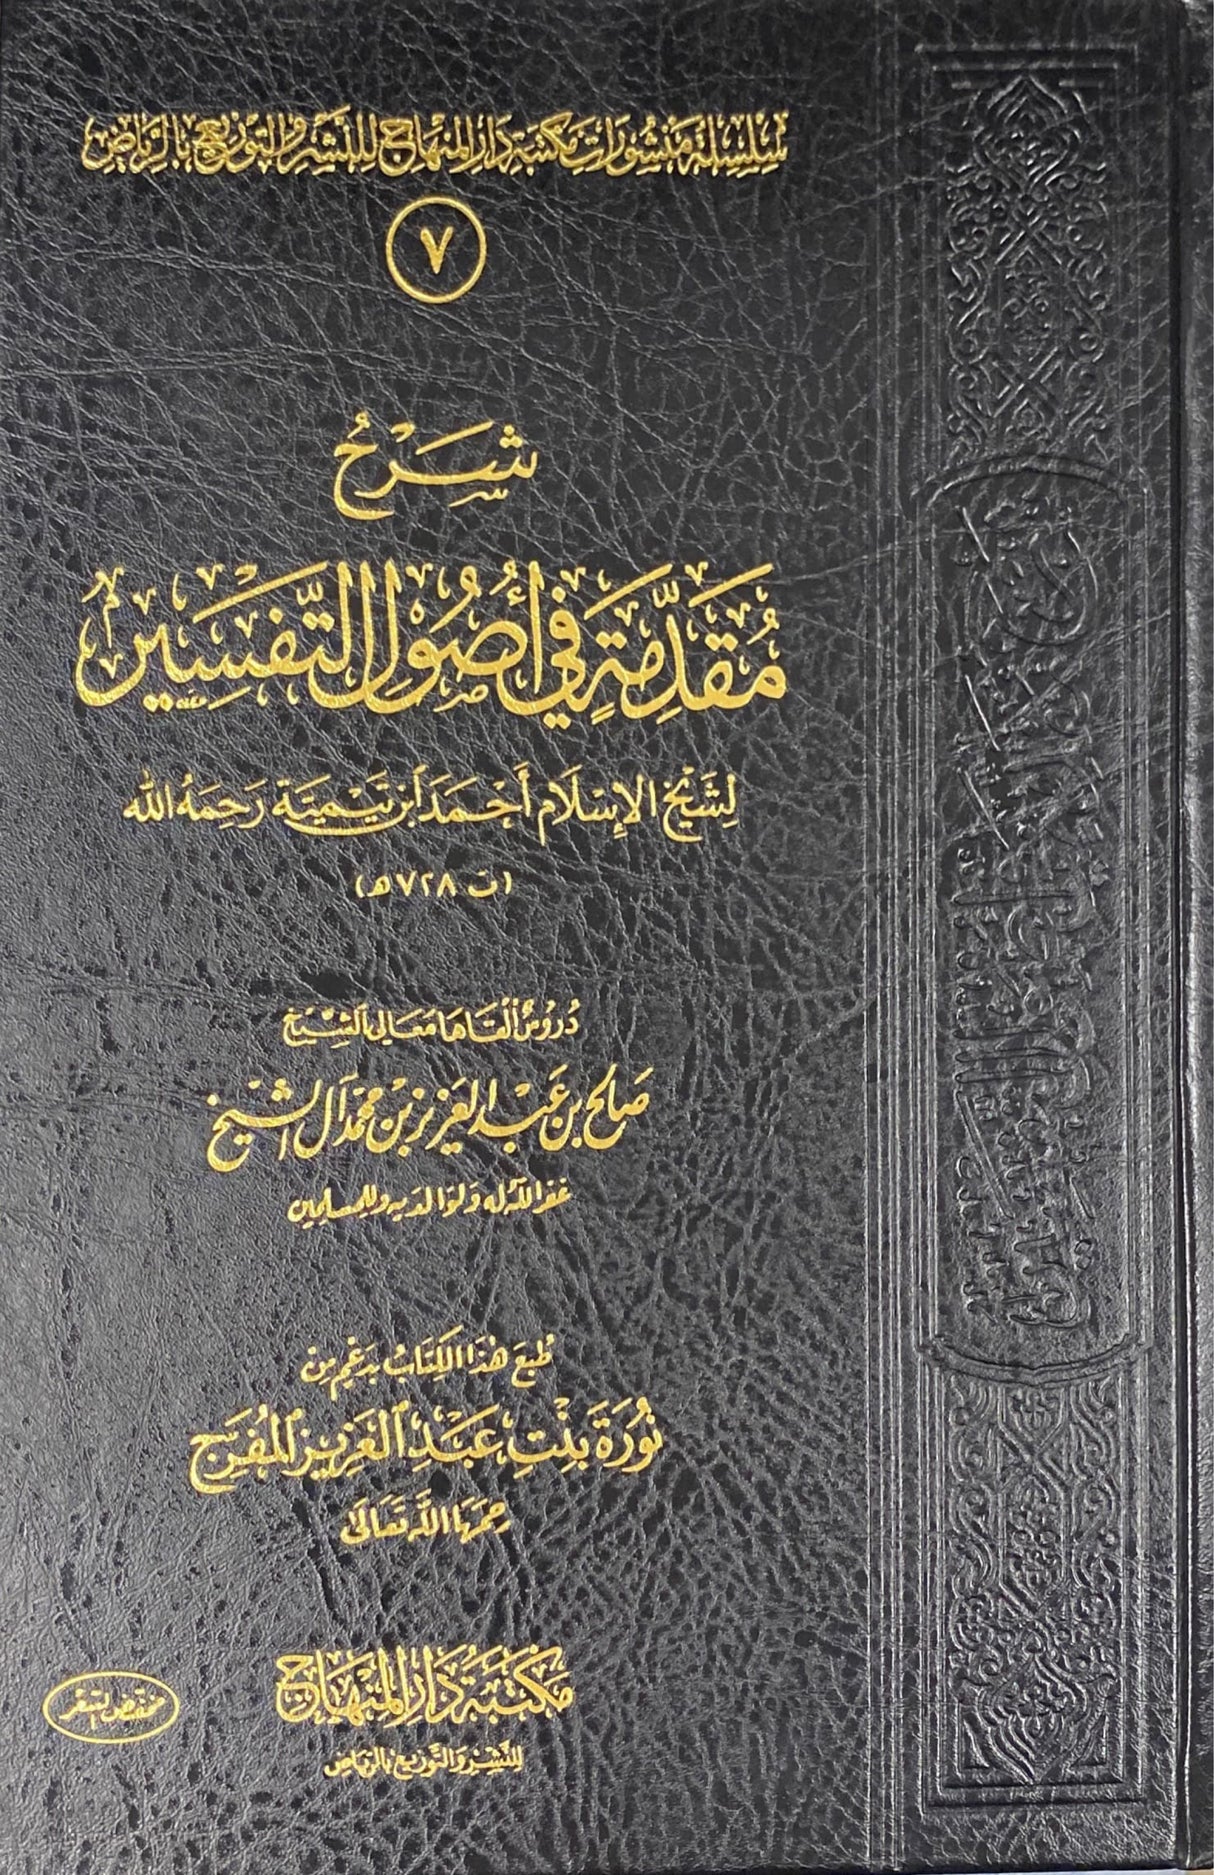 سِلْسِلَة مَنْشُورَات مَكتَبة دَار المِنهَاج لِلنَّشر وَالتّوزيع بِالرّيَاض
٧
شَرْحُ
مُقَدِّمَةٍ فِي أُصُولِ التَّفْسِيرِ
لِشَيْخِ الإِسْلَام أَحْمَد ابْن تَيْمِيَّة رَحِمَهُ اللّٰه
(ت ٧٢٨هـ)
دُرُوسٌ أَلْقَاهَا مَعَالِي الشَّيْخ
صَالح بن عَبْد العَزيز بْن محَمَّد آل الشَّيخ
غفر اللّٰه له ولوالديه وللمسلمين
طُبِعَ هٰذَا الكِتَابُ بِدَعْمٍ مِنْ
نُورَة بِنْتِ عَبْدِ العَزِيزِ المُفَرِّج
رحمَهَا اللَّه تَعَالَى
مَكْتَبَة دَار المِنْهَاج
لِلنَّشْر وَالتَّوْزِيع بِالرِّيَاض
مخفض السعر